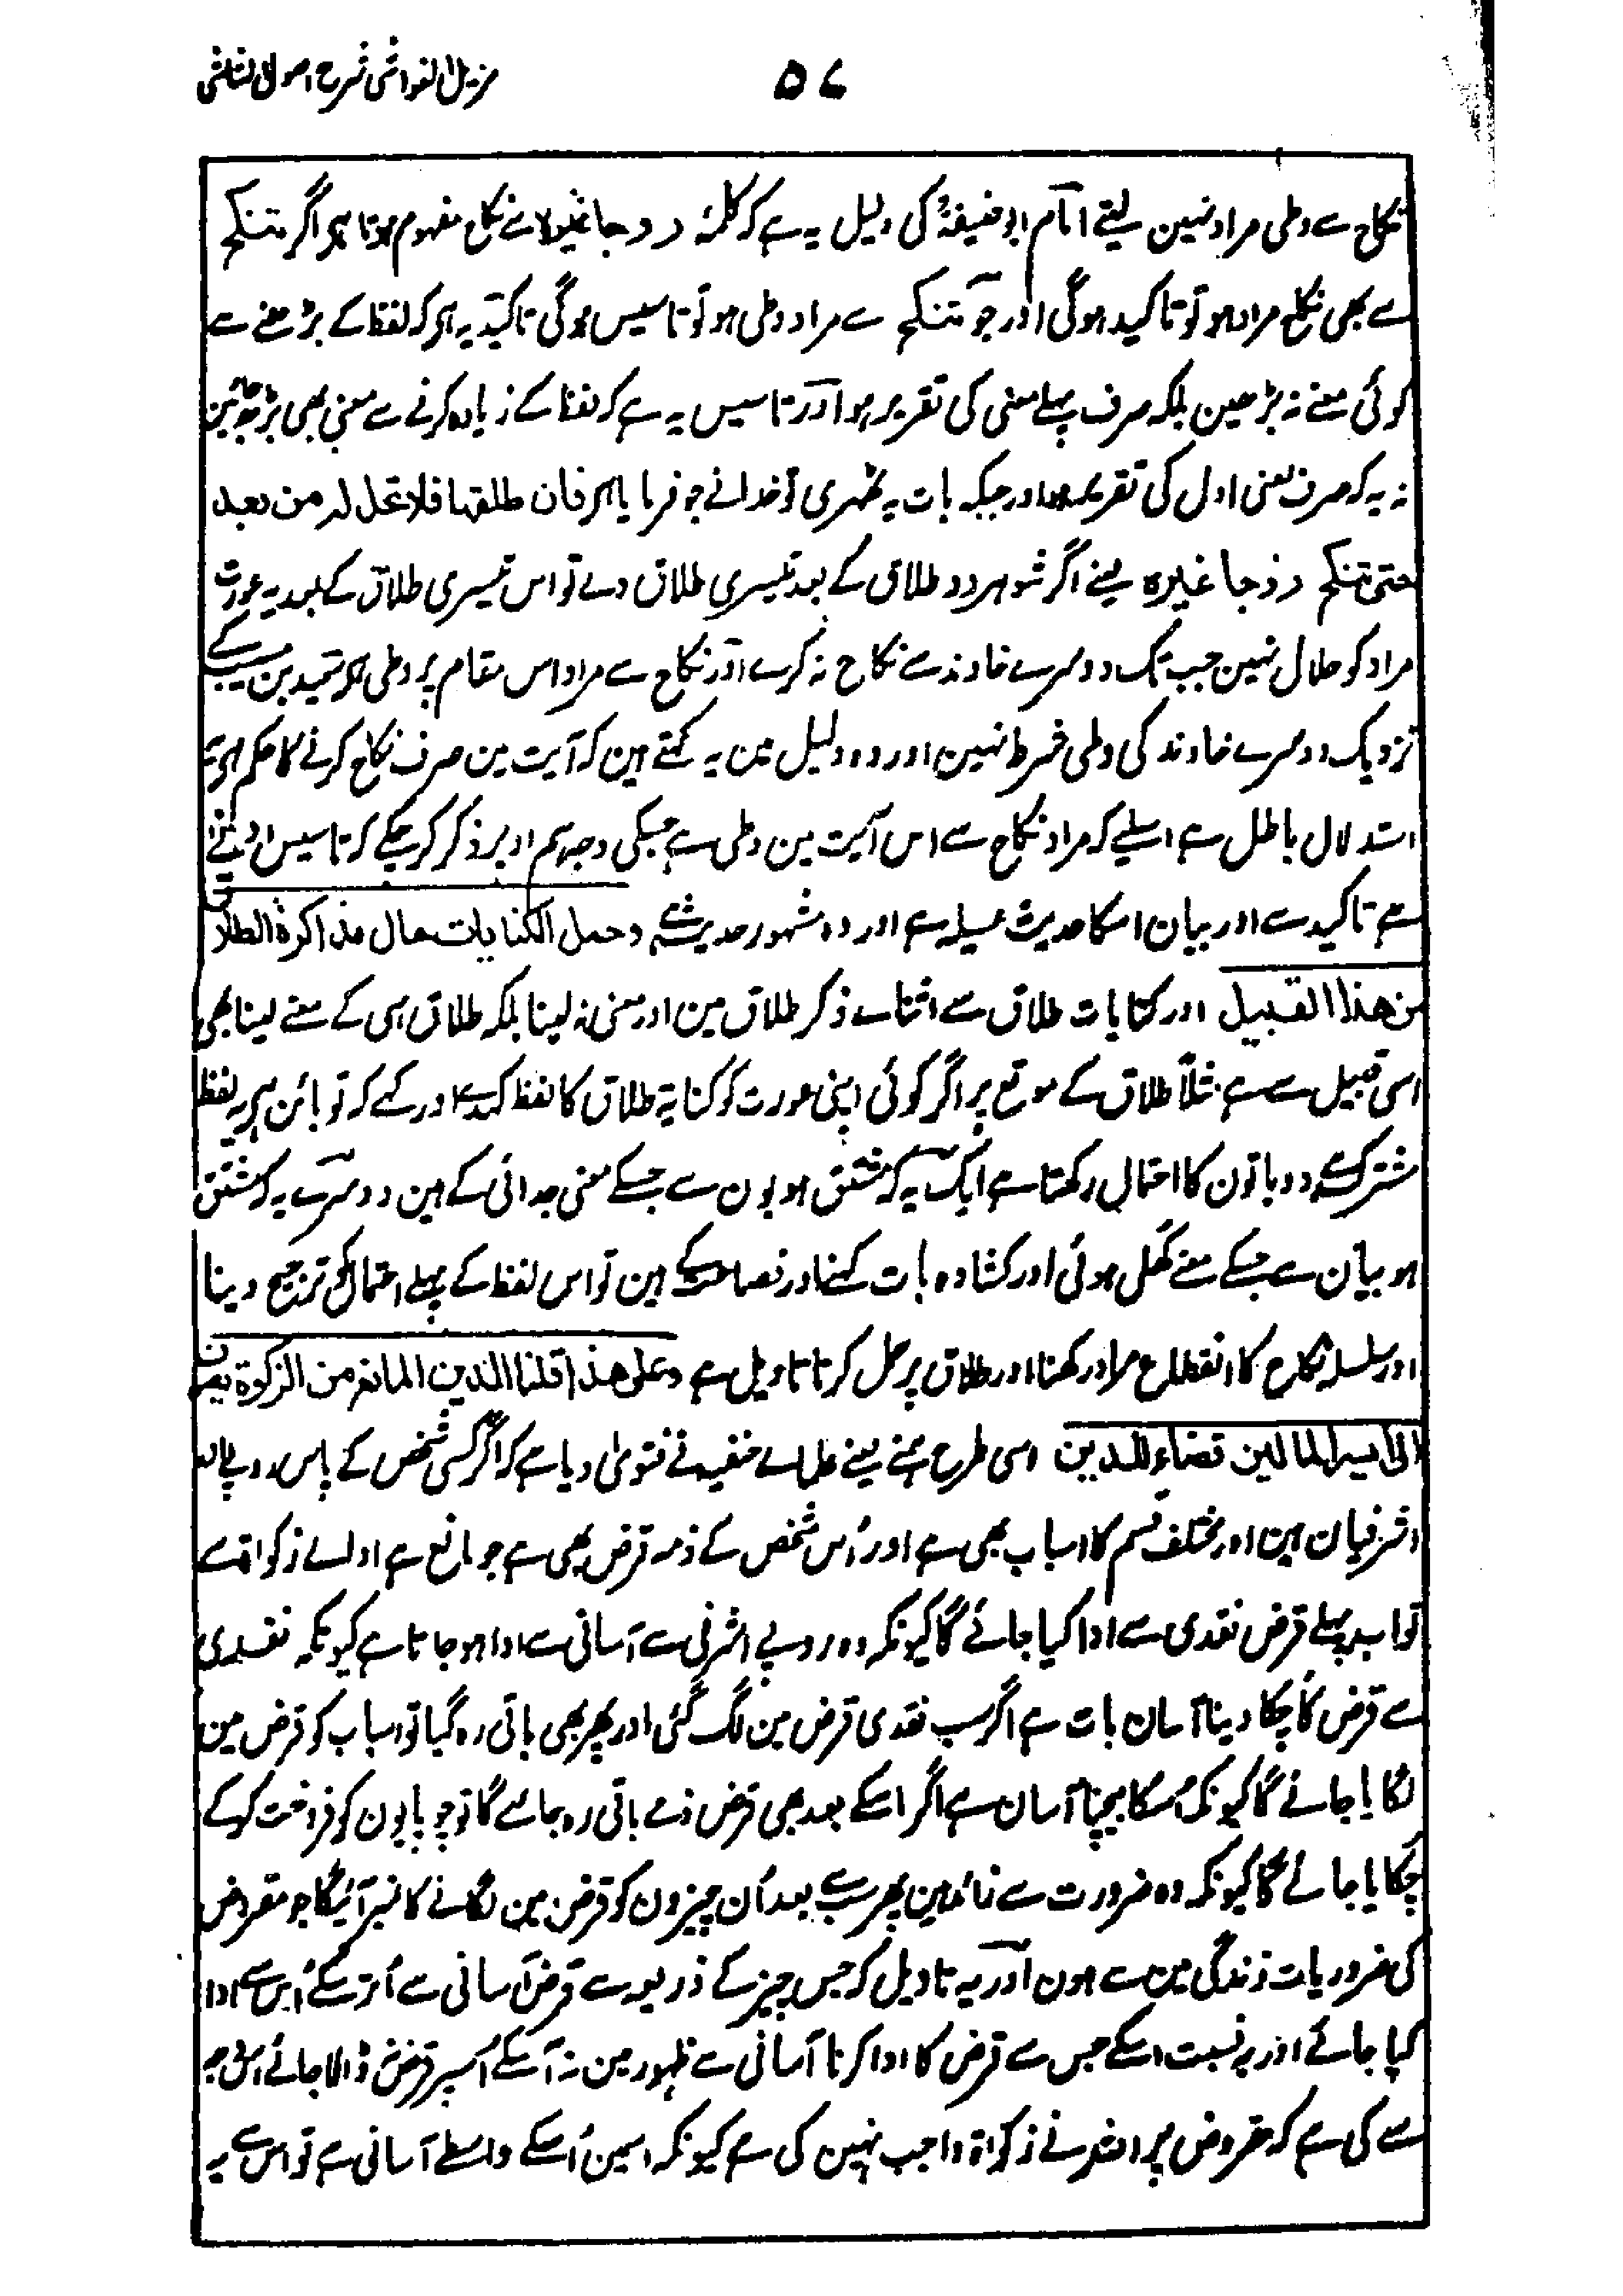 مزیل الغواشی شرح اصول الشاشی
۵۷
نکاح سے وطی مراد نہین لیتے امام ابوحنیفہؒ کی دلیل یہ ہے کہ کلمۂ زوجا غیرہ سے نکاح مفہوم ہوتا ہی اگر تنکح
سے بھی نکاح مراد ہو تو تاکید ہوگی اور جو تنکح سے مراد وطی ہو تو تاسیس ہوگی تاکید یہ ہی کہ لفظ کے بڑھنے سے
کوئی معنے نہ بڑھین بلکہ صرف پہلے معنی کی تقریر ہو اور تاسیس یہ ہے کہ لفظ کے زیادہ کرنے سے معنی بھی بڑھ جائین
نہ یہ کہ صرف معنی اول کی تقریر ہو اور جبکہ بات یہ ٹھہری تو خدا نے جو فرمایا ہی فان طلقہا فلا تحل لہ من بعد
حتی تنکح زوجا غیرہ یعنے اگر شوہر دو طلاق کے بعد تیسری طلاق دے تو اس تیسری طلاق کے بعد یہ عورت
مرد کو حلال نہین جب تک دوسرے خاوند سے نکاح نہ کرے اور نکاح سے مراد اس مقام پر وطی ہی سعید بن مسیب کے
نزدیک دوسرے خاوند کی وطی شرط نہین اور وہ دلیل مین یہ کہتے ہین کہ آیت مین صرف نکاح کرنے کا حکم ہی یہ
استدلال باطل ہے اسلیے کہ مراد نکاح سے اس آیت مین وطی ہے جسکی وجہ ہم اوپر ذکر کر چکے کہ تاسیس اولی
ہے تاکید سے اور بیان اسکا حدیث عسیلہ ہے اور وہ مشہور حدیث ہے وحمل الکنایات حال مذاکرة الطلاق
من ھذا القبیل اور کنایات طلاق سے اثناے ذکر طلاق مین اور معنی نہ لینا بلکہ طلاق ہی کے معنے لینا بھی
اسی قبیل سے ہے مثلاً طلاق کے موقع پر اگر کوئی اپنی عورت کو کنایۃ طلاق کا لفظ کہدے اور کہے کہ تو بائن ہی یہ لفظ
مشترک ہے دو باتون کا احتمال رکھتا ہے ایک یہ کہ مشتق ہو بون سے جسکے معنی جدائی کے ہین دوسرے یہ کہ مشتق
ہو بیان سے جسکے معنے کھلی ہوئی اور کشادہ بات کہنے اور فصاحت کے ہین تو اس لفظ کے پہلے احتمال کو ترجیح دینا
اور سلسلہ نکاح کا انقطاع مراد رکھنا اور طلاق پر حمل کرنا تاویل ہے وعلی ھذا قلنا الدین المانع من الزکوة یصرف
الی ایسر المالین قضاء للدین اسی طرح ہمنے یعنے علماے حنفیہ نے فتویٰ دیا ہے کہ اگر کسی شخص کے پاس روپے اور
اشرفیان ہین اور مختلف قسم کا اسباب بھی ہے اور اُس شخص کے ذمہ قرض بھی ہے جو مانع ہے اداے زکواة سے
تو اب پہلے قرض نقدی سے ادا کیا جائے گا کیونکہ وہ روپے اشرفی سے آسانی سے ادا ہو جاتا ہے کیونکہ نقدی
سے قرض کا چکا دینا آسان بات ہے اگر سب نقدی قرض مین لگ گئی اور پھر بھی باقی رہ گیا تو اسباب کو قرض مین
لگایا جائے گا کیونکہ اُسکا بیچنا آسان ہے اگر اسکے بعد بھی قرض ذمے باقی رہ جائے گا تو چوپایون کو فروخت کر کے
چکایا جائے گا کیونکہ وہ ضرورت سے زائد ہین پھر سب کے بعد اُن چیزون کو قرض مین لگانے کا نمبر آئیگا جو مقروض
کی ضروریات زندگی مین سے ہون اور یہ تاویل کہ جس چیز کے ذریعہ سے قرض آسانی سے اُتر سکے اُس سے ادا
کیا جائے اور بہ نسبت اسکے جس سے قرض کا ادا کرنا آسانی سے ظہور مین نہ آ سکے اُسپر قرض نہ ڈالا جائے اس وجہ
سے کی ہے کہ مقروض پر اللہ نے زکواة واجب نہین کی ہے کیونکہ اسمین اُسکے واسطے آسانی ہے تو اس سے یہ